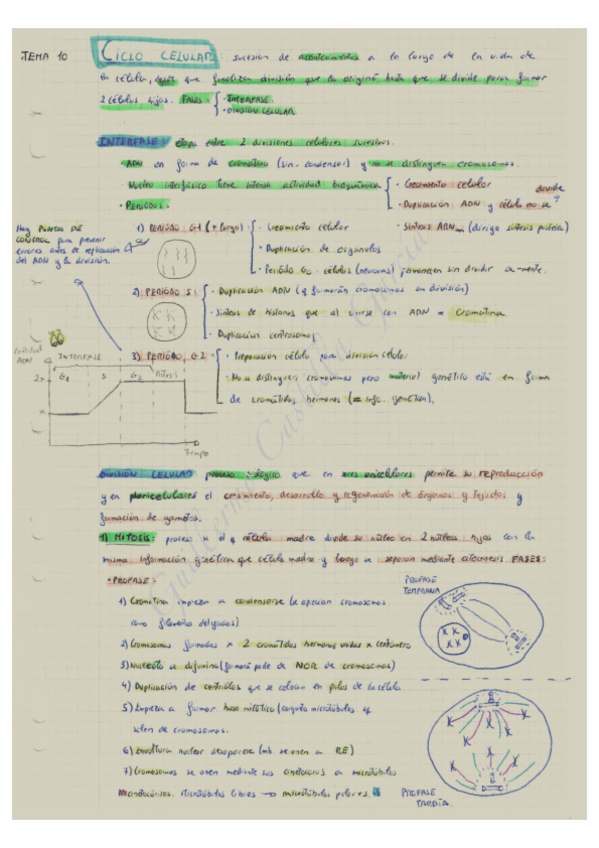 TEMA 10
CICLO CELULAR: sucesión de acontecimientos a lo largo de la vida de
la célula, desde que finaliza división que la originó hasta que se divide para formar
2 células hijas. FASES: · INTERFASE.
· DIVISIÓN CELULAR
INTERFASE: etapa entre 2 divisiones celulares sucesivas.
· ADN en forma de cromatina (sin condensar) y no se distinguen cromosomas.
· Núcleo interfásico tiene intensa actividad bioquímica
· Crecimiento celular
· Duplicación ADN y célula no se divide
· Síntesis ARNm (dirige síntesis proteica)
· PERÍODOS:
Hay PUNTOS DE
CONTROL para prevenir
errores antes de replicación
del ADN y la división.
1) PERÍODO G1 (+ largo)
· Crecimiento celular
· Duplicación de orgánulos
· Período G0 células (neuronas) permanecen sin dividir
2) PERÍODO S:
· Duplicación ADN (q formarán cromosomas en división)
· Síntesis de histonas que al unirse con ADN = cromatina
· Duplicación centrosomas
3) PERÍODO G2
· Preparación célula para división celular
· No se distinguen cromosomas pero material genético está en forma
de cromátidas hermanas (= info. genética).
cantidad
ADN
INTERFASE
G1 S G2 Mitosis
2x
x
Tiempo
DIVISIÓN CELULAR proceso biológico que en seres unicelulares permite su reproducción
y en pluricelulares el crecimiento, desarrollo y regeneración de órganos y tejidos y
formación de gametos.
1) MITOSIS: proceso x el q célula madre divide su núcleo en 2 núcleos hijos con la
misma información genética que célula madre y luego se separan mediante citocinesis FASES:
· PROFASE:
1) Cromatina empieza a condensarse (se aprecian cromosomas
como filamentos delgados)
2) Cromosomas formados x 2 cromátidas hermanas unidas x centrómero
3) Nucléolo se difumina (formará parte de NOR de cromosomas)
4) Duplicación de centriolos que se colocan en polos de la célula
5) Empieza a formar huso mitótico (conjunto microtúbulos q
salen de cromosomas.
6) Envoltura nuclear desaparece (mb se unen a RE)
7) Cromosomas se unen mediante sus cinetocoros a microtúbulos
Microtúbulos libres → microtúbulos polares.
PROFASE
TEMPRANA
PROFASE
TARDÍA.